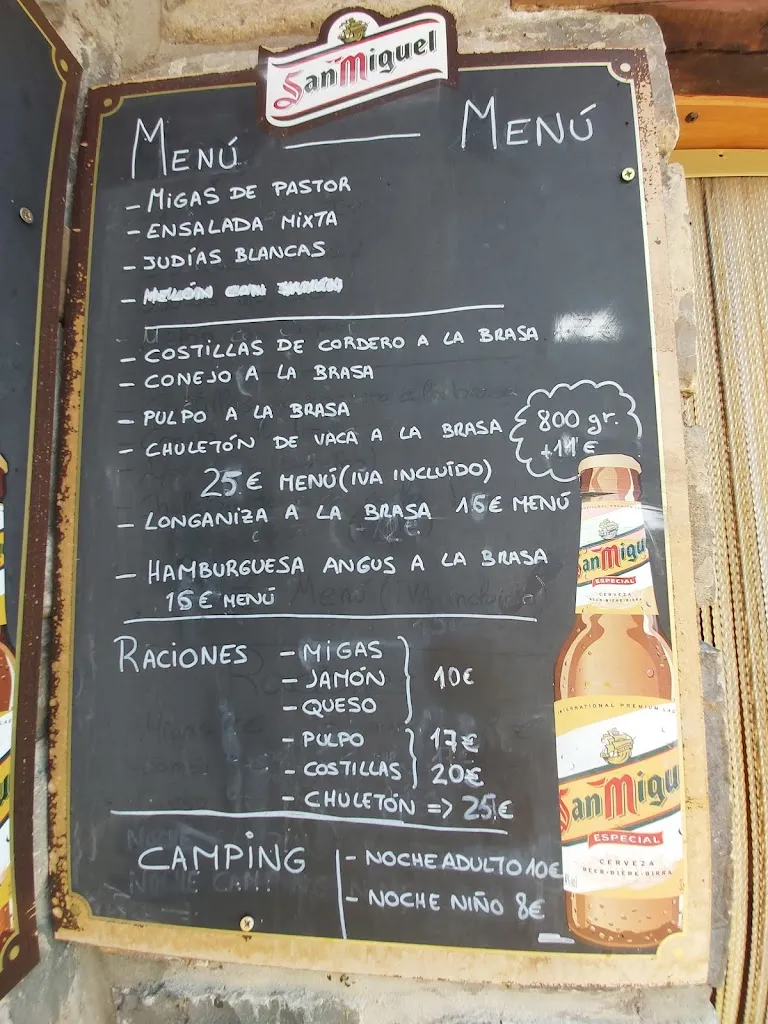 San Miguel
MENÚ — MENÚ
- MIGAS DE PASTOR
- ENSALADA MIXTA
- JUDÍAS BLANCAS
- MELÓN CON
- COSTILLAS DE CORDERO A LA BRASA
- CONEJO A LA BRASA
- PULPO A LA BRASA
- CHULETÓN DE VACA A LA BRASA
800 gr.
+11€
25€ MENÚ (IVA INCLUÍDO)
- LONGANIZA A LA BRASA 15€ MENÚ
- HAMBURGUESA ANGUS A LA BRASA
15€ MENÚ
RACIONES - MIGAS
- JAMÓN 10€
- QUESO
- PULPO 17€
- COSTILLAS 20€
- CHULETÓN => 25€
CAMPING - NOCHE ADULTO 10€
- NOCHE NIÑO 8€
an Migu
ESPECIAL
CERVEZA
BEER-BIÈRE-BIRRA
INTERNATIONAL PREMIUM LAG
San Migu
ESPECIAL
CERVEZA
BEER-BIÈRE-BIRRA